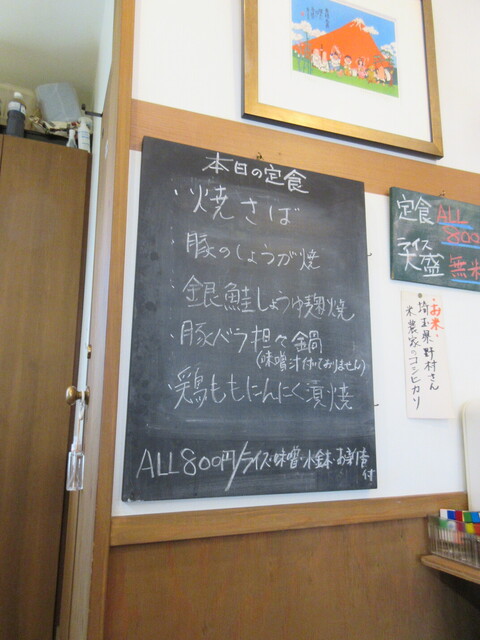 本日の定食
・焼さば
・豚のしょうが焼
・銀鮭しょうゆ麹焼
・豚バラ担々鍋
(味噌汁付ておりません)
・鶏ももにんにく漬焼
ALL800円/ライス・味噌・小鉢・お新香
付
定食ALL
800
ライス
大盛 無料
・お米・
埼玉県野村さん
米農家のコシヒカリ